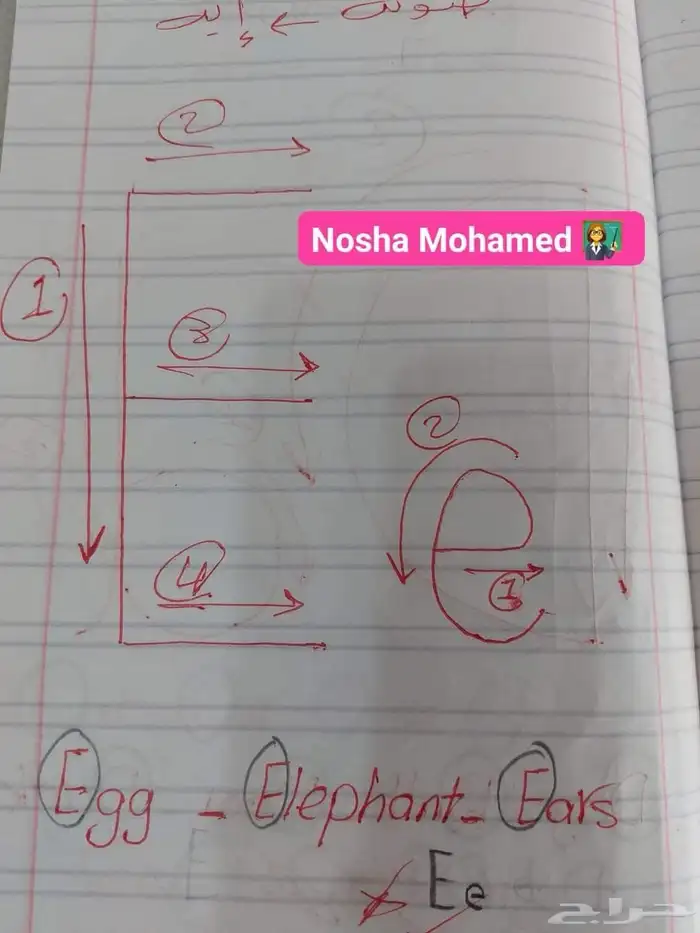 صوته ← إيه
2
Nosha Mohamed
1
3
2
4
1
Egg - Elephant - Ears
Ee
حراج